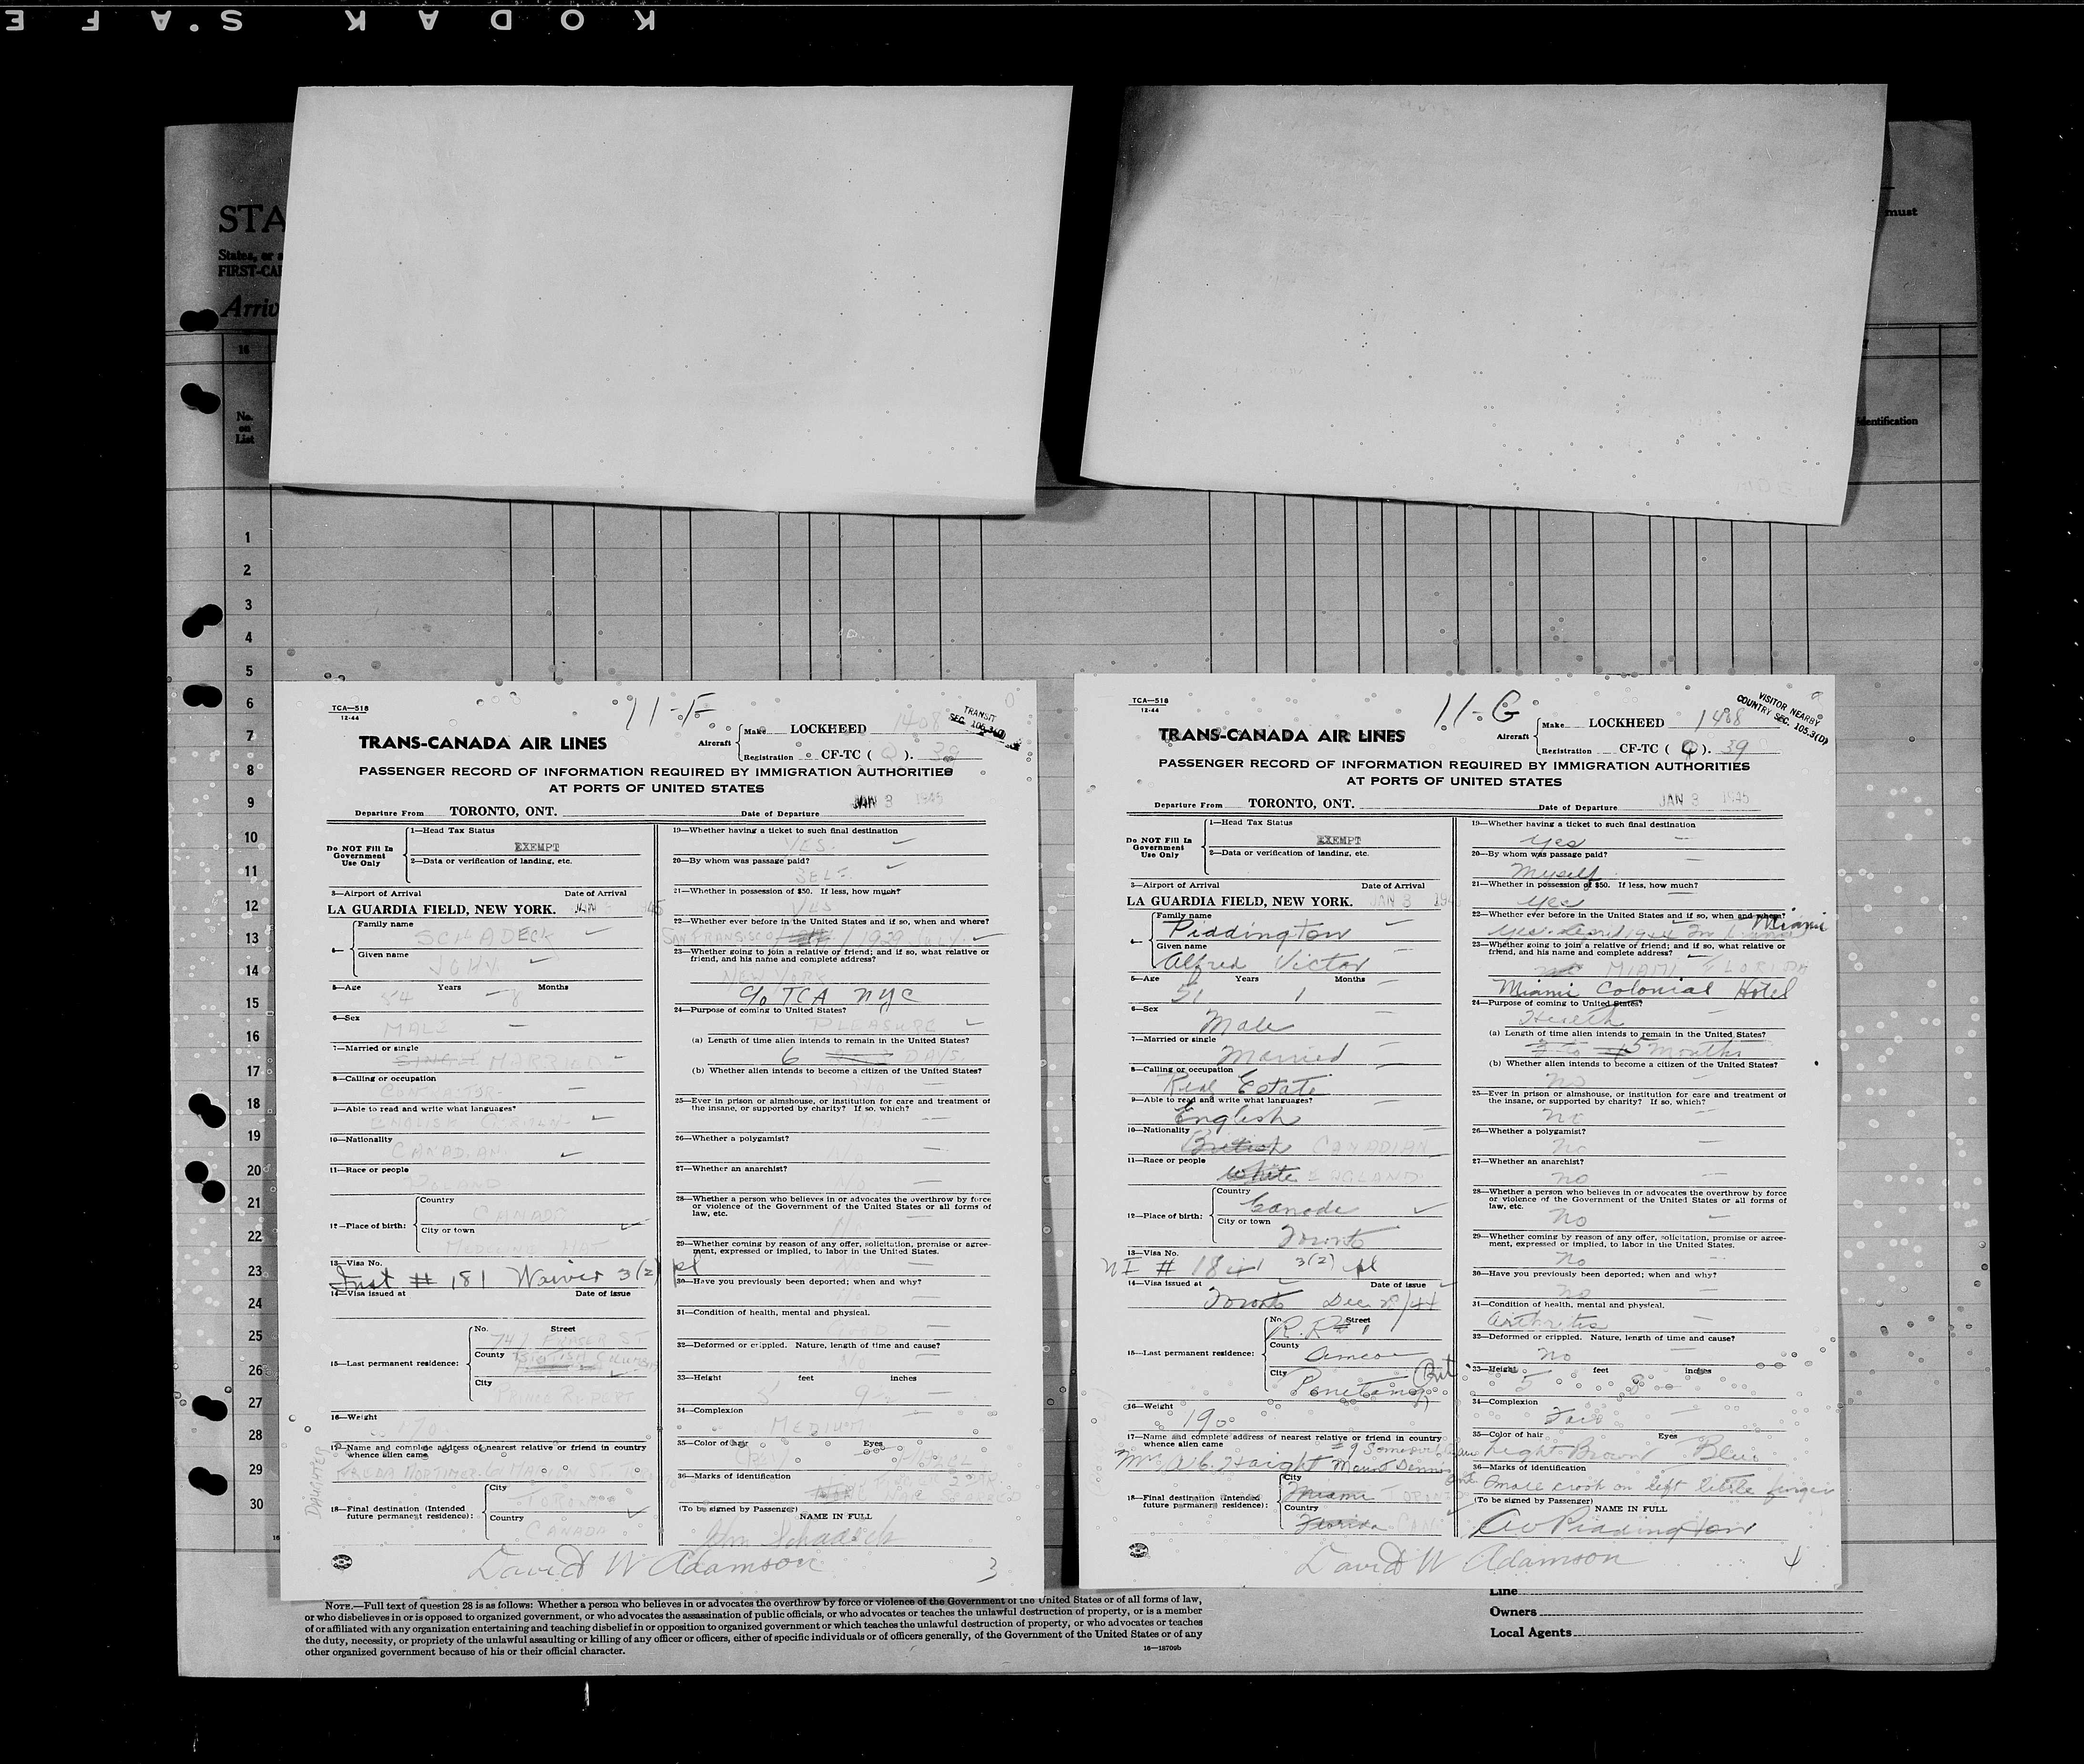 KODAK SAFE
STA
must
States, or a
FIRST-CA
Arriv
16
No.
on
List
identification
1
2
3
4
5
6
7
8
9
10
11
12
13
14
15
16
17
18
19
20
21
22
23
24
25
26
27
28
29
30
TCA—518
12-44
11-F
TRANSIT
SEC. 105.3(D)
TRANS-CANADA AIR LINES
Aircraft
Make LOCKHEED 1408
Registration CF-TC ( Q ). 39
PASSENGER RECORD OF INFORMATION REQUIRED BY IMMIGRATION AUTHORITIES
AT PORTS OF UNITED STATES
Departure From TORONTO, ONT. Date of Departure JAN 3 1945
Do NOT Fill In
Government
Use Only
1—Head Tax Status
EXEMPT
2—Data or verification of landing, etc.
3—Airport of Arrival Date of Arrival
LA GUARDIA FIELD, NEW YORK. JAN
4—
Family name
SCHADECK
Given name
JOHN
5—Age 54 Years 8 Months
6—Sex
MALE
7—Married or single
SINGLE MARRIED
8—Calling or occupation
9—Able to read and write what languages?
ENGLISH GERMAN
10—Nationality
CANADIAN
11—Race or people
POLAND
12—Place of birth:
Country
CANADA
City or town
13—Visa No.
Inst # 181 Waiver 3(2) pl
14—Visa issued at Date of issue
15—Last permanent residence:
No. Street
747 FRASER ST
County
BRITISH COLUMBIA
City
PRINCE RUPERT
16—Weight
170
17—Name and complete address of nearest relative or friend in country
whence alien came
FREDA MORTIMER
DAUGHTER
18—Final destination (Intended
future permanent residence):
City
TORONTO
Country
CANADA
19—Whether having a ticket to such final destination
YES.
20—By whom was passage paid?
SELF
21—Whether in possession of $50. If less, how much?
YES
22—Whether ever before in the United States and if so, when and where?
SAN FRANSISCO 1929
23—Whether going to join a relative or friend; and if so, what relative or
friend, and his name and complete address?
NEW YORK
c/o TCA NYC
24—Purpose of coming to United States?
PLEASURE
(a) Length of time alien intends to remain in the United States?
6 DAYS
(b) Whether alien intends to become a citizen of the United States?
NO
25—Ever in prison or almshouse, or institution for care and treatment of
the insane, or supported by charity? If so, which?
26—Whether a polygamist?
No
27—Whether an anarchist?
No
28—Whether a person who believes in or advocates the overthrow by force
or violence of the Government of the United States or all forms of
law, etc.
No
29—Whether coming by reason of any offer, solicitation, promise or agree-
ment, expressed or implied, to labor in the United States.
No
30—Have you previously been deported; when and why?
31—Condition of health, mental and physical.
32—Deformed or crippled. Nature, length of time and cause?
No
33—Height 5' feet 9½ inches
34—Complexion
MEDIUM
35—Color of hair Eyes
GREY HAZEL
36—Marks of identification
(To be signed by Passenger)
NAME IN FULL
John Schadeck
David W Adamson 3
TCA—518
12-44
11-G
VISITOR NEARBY
COUNTRY SEC. 105.3(D)
TRANS-CANADA AIR LINES
Aircraft
Make LOCKHEED 1408
Registration CF-TC ( Q ). 39
PASSENGER RECORD OF INFORMATION REQUIRED BY IMMIGRATION AUTHORITIES
AT PORTS OF UNITED STATES
Departure From TORONTO, ONT. Date of Departure JAN 3 1945
Do NOT Fill In
Government
Use Only
1—Head Tax Status
EXEMPT
2—Data or verification of landing, etc.
3—Airport of Arrival Date of Arrival
LA GUARDIA FIELD, NEW YORK. JAN 3 194
4—
Family name
Piddington
Given name
Alfred Victor
5—Age 51 Years 1 Months
6—Sex
Male
7—Married or single
Married
8—Calling or occupation
Real Estate
9—Able to read and write what languages?
English
10—Nationality
British CANADIAN
11—Race or people
White ENGLAND
12—Place of birth:
Country
Canada
City or town
Toronto
13—Visa No.
NI # 1841 3(2) pl
14—Visa issued at Date of issue
Toronto Dec 28/44
15—Last permanent residence:
No. Street
R.R # 1
County
Simcoe
City
Penetang Ont
16—Weight
190
17—Name and complete address of nearest relative or friend in country
whence alien came #9 Somerset
Mrs W C. Haight Mount Dennis
18—Final destination (Intended
future permanent residence):
City
Miami TORONTO
Country
Florida CAN
19—Whether having a ticket to such final destination
Yes
20—By whom was passage paid?
Myself
21—Whether in possession of $50. If less, how much?
Yes
22—Whether ever before in the United States and if so, when and where?
Yes. April 1944 In Miami
23—Whether going to join a relative or friend; and if so, what relative or
friend, and his name and complete address?
no MIAMI FLORIDA
Miami Colonial Hotel
24—Purpose of coming to United States?
Health
(a) Length of time alien intends to remain in the United States?
5 months
(b) Whether alien intends to become a citizen of the United States?
no
25—Ever in prison or almshouse, or institution for care and treatment of
the insane, or supported by charity? If so, which?
no
26—Whether a polygamist?
no
27—Whether an anarchist?
no
28—Whether a person who believes in or advocates the overthrow by force
or violence of the Government of the United States or all forms of
law, etc.
no
29—Whether coming by reason of any offer, solicitation, promise or agree-
ment, expressed or implied, to labor in the United States.
No
30—Have you previously been deported; when and why?
no
31—Condition of health, mental and physical.
Arthritis
32—Deformed or crippled. Nature, length of time and cause?
no
33—Height 5 feet 8 inches
34—Complexion
Fair
35—Color of hair Eyes
Light Brown Blue
36—Marks of identification
Small crook on left little finger
(To be signed by Passenger)
NAME IN FULL
AV Piddington
David W Adamson 4
NOTE.—Full text of question 28 is as follows: Whether a person who believes in or advocates the overthrow by force or violence of the Government of the United States or of all forms of law,
or who disbelieves in or is opposed to organized government, or who advocates the assassination of public officials, or who advocates or teaches the unlawful destruction of property, or is a member
of or affiliated with any organization entertaining and teaching disbelief in or opposition to organized government or which teaches the unlawful destruction of property, or who advocates or teaches
the duty, necessity, or propriety of the unlawful assaulting or killing of any officer or officers, either of specific individuals or of officers generally, of the Government of the United States or of any
other organized government because of his or their official character.
16—18709b
Line
Owners
Local Agents